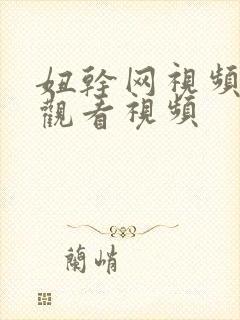 妞幹网視頻
觀看視頻
蘭峭